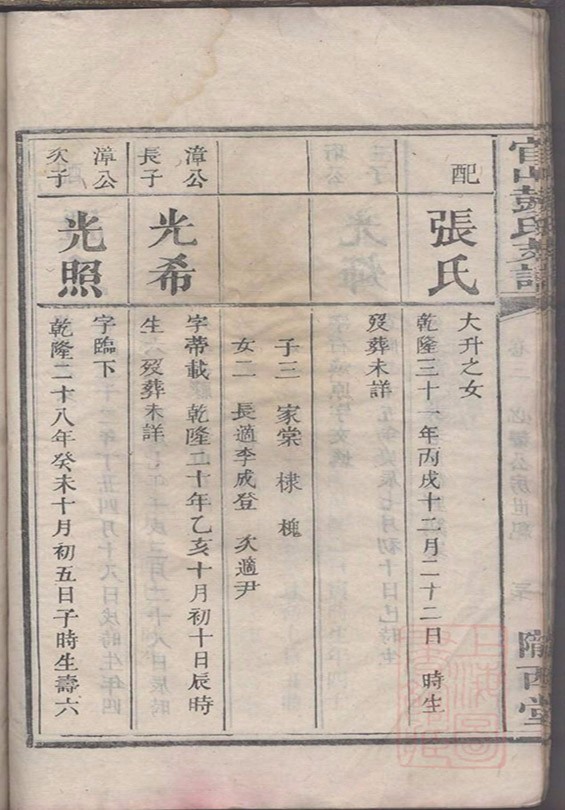 官山彭氏支譜
卷二
隴西堂
配
張氏
大升之女
乾隆三十一年丙戌十二月二十二日 時生
歿葬未詳
子三 家棠 棣 槐
女二 長適李成登 次適尹
漳公
長子
光希
字蒂載 乾隆二十年乙亥十月初十日辰時
生 歿葬未詳
漳公
次子
光照
字臨下
乾隆二十八年癸未十月初五日子時生壽六